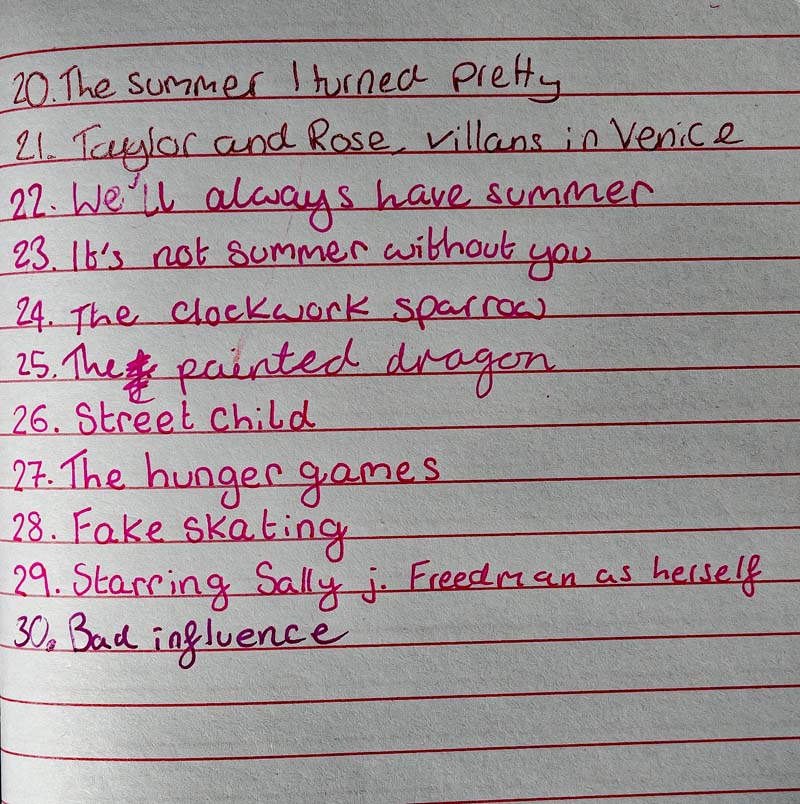 20. The summer I turned pretty
21. Taylor and Rose villans in Venice
22. We'll always have summer
23. It's not summer without you
24. The clockwork sparrow
25. The painted dragon
26. Street child
27. The hunger games
28. Fake skating
29. Starring Sally j. Freedman as herself
30. Bad influence